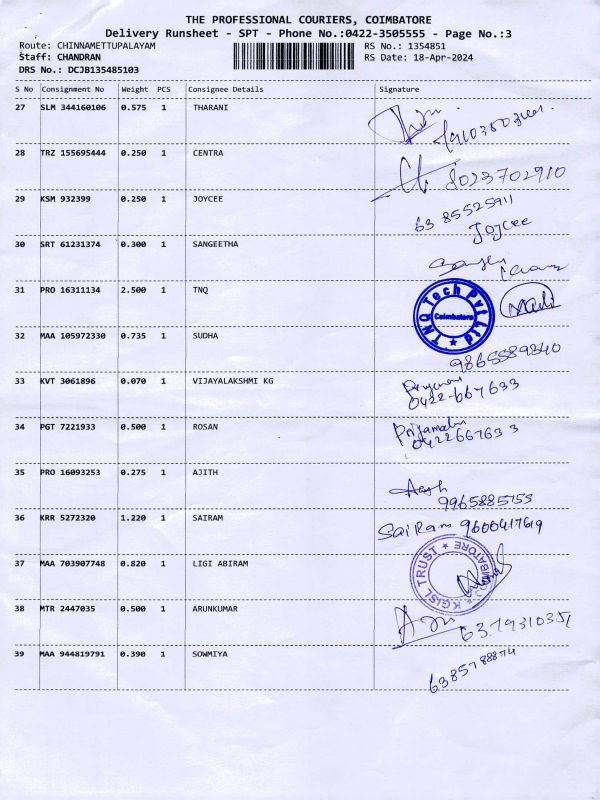 THE PROFESSIONAL COURIERS, COIMBATORE
Delivery Runsheet - SPT - Phone No.:0422-3505555 - Page No.:3
Route: CHINNAMETTUPALAYAM RS No.: 1354851
Staff: CHANDRAN RS Date: 18-Apr-2024
DRS No.: DCJB135485103
S No Consignment No Weight PCS Consignee Details Signature
27 SLM 344160106 0.575 1 THARANI
28 TRZ 155695444 0.250 1 CENTRA
8023702910
29 KSM 932399 0.250 1 JOYCEE
63 85525911
Joycee
30 SRT 61231374 0.300 1 SANGEETHA
31 PRO 16311134 2.500 1 TNQ
TNQ Tech Pvt Ltd
Coimbatore
32 MAA 105972330 0.735 1 SUDHA
9865589340
33 KVT 3061896 0.070 1 VIJAYALAKSHMI KG
0422-667633
34 PGT 7221933 0.500 1 ROSAN
0422667633
35 PRO 16093253 0.275 1 AJITH
9965885755
36 KRR 5272320 1.220 1 SAIRAM
SaiRam 9600417619
37 MAA 703907748 0.820 1 LIGI ABIRAM
KGISL TRUST COIMBATORE
38 MTR 2447035 0.500 1 ARUNKUMAR
39 MAA 944819791 0.390 1 SOWMIYA
6385788874